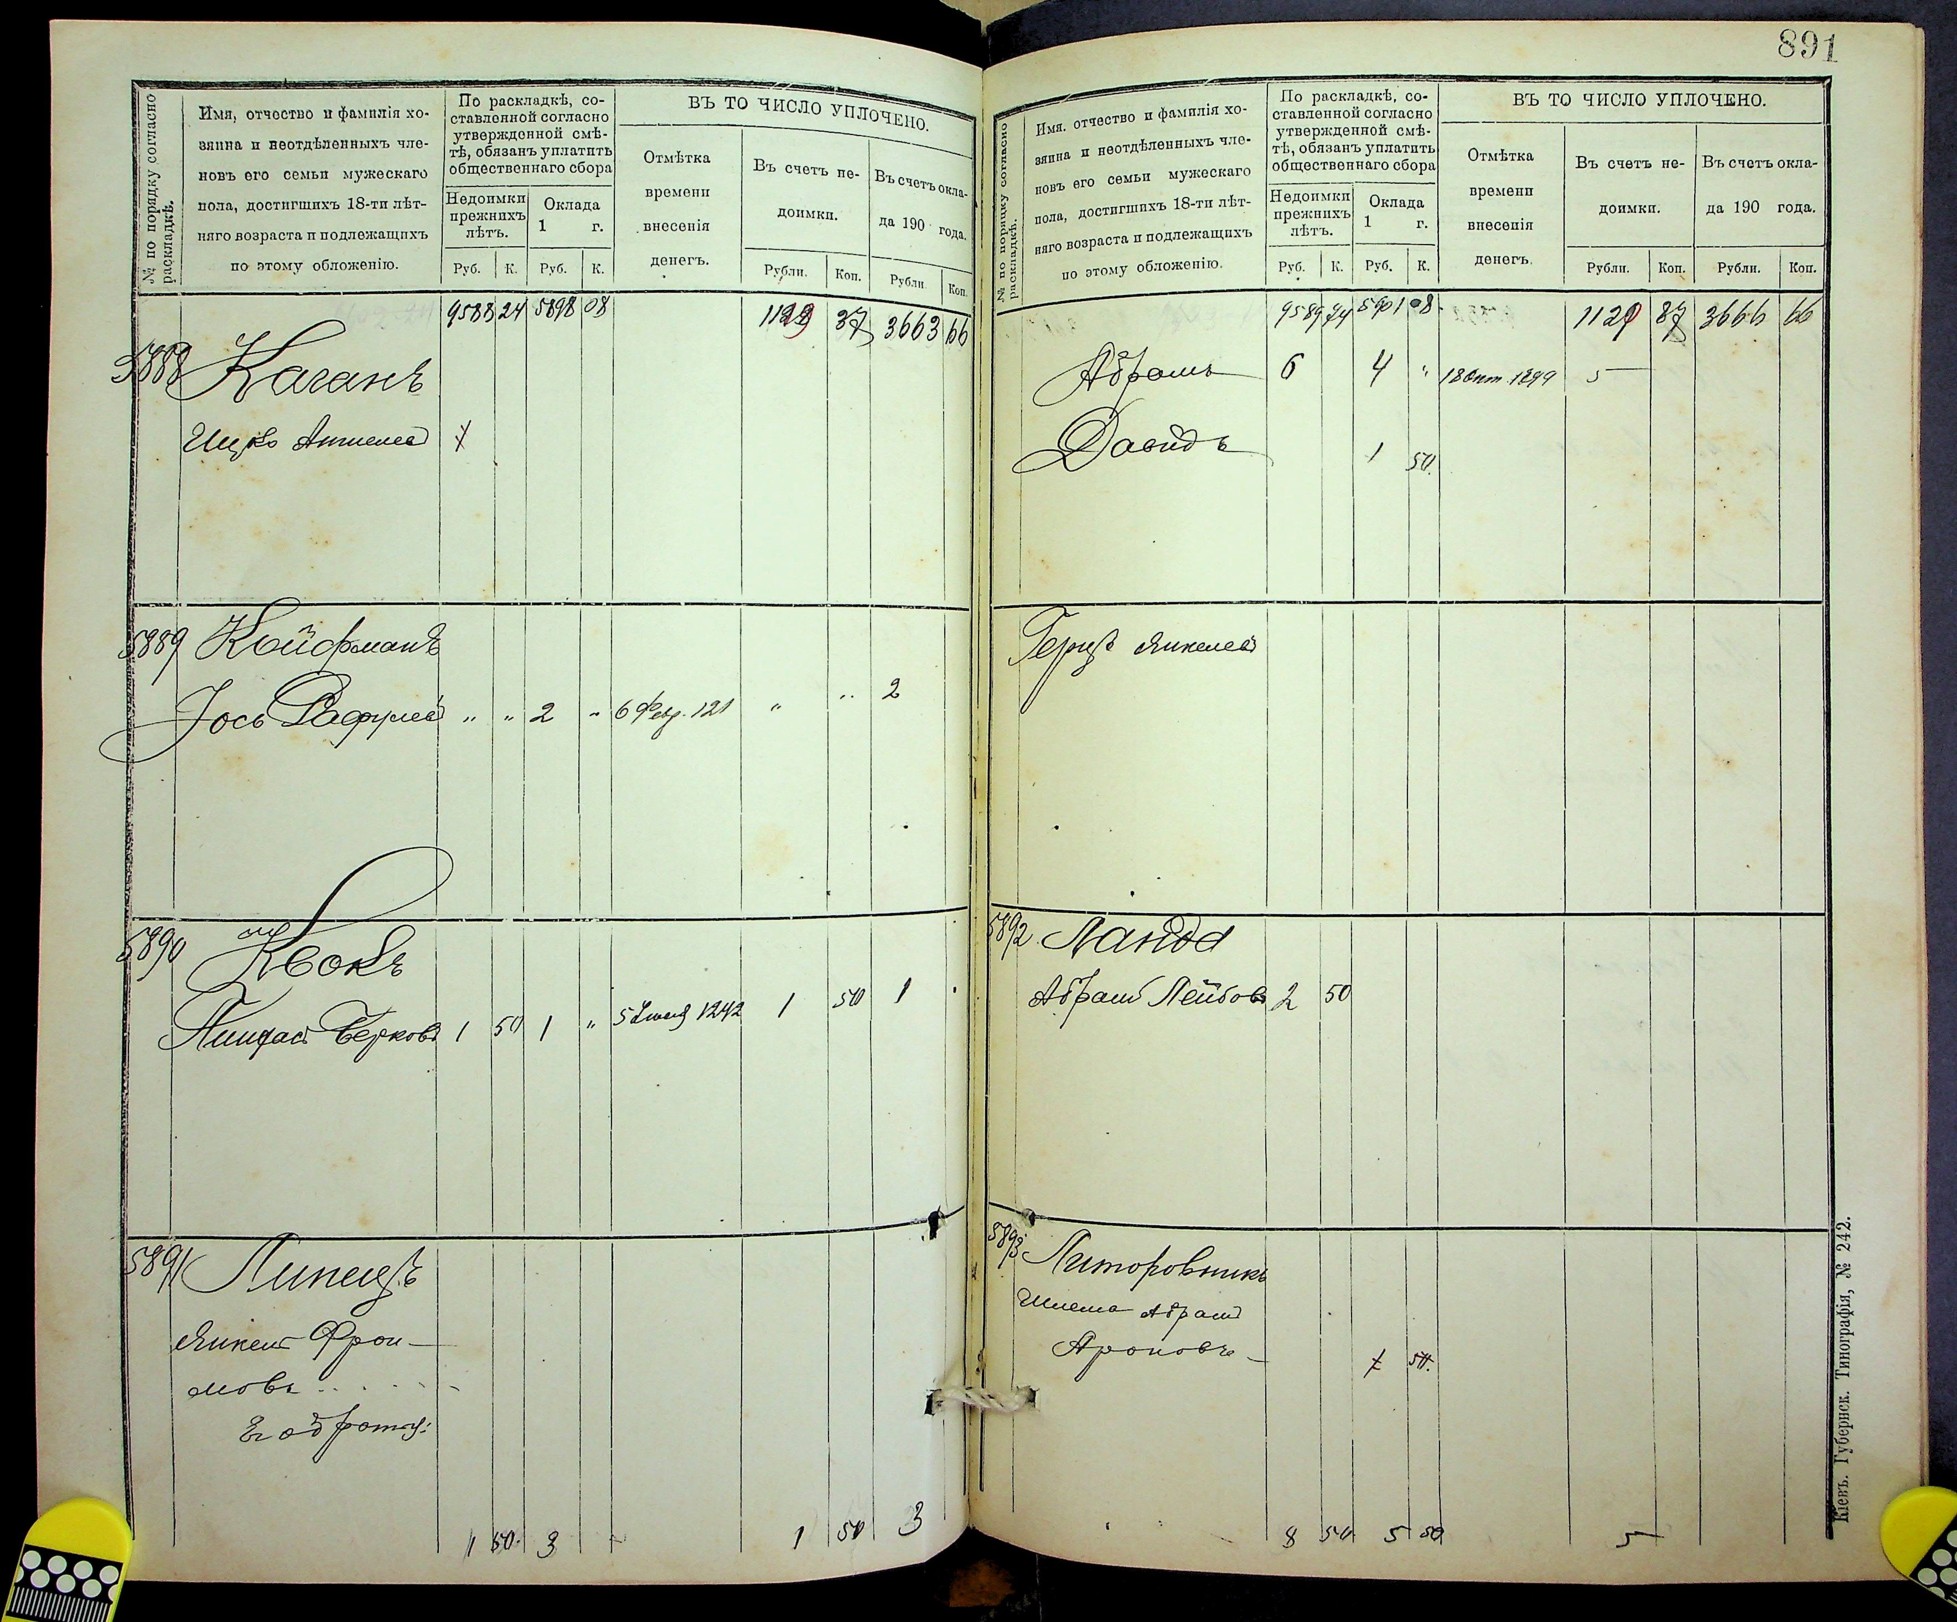 891
№ по порядку согласно раскладкѣ.
Имя, отчество и фамилія хо-
зяина и неотдѣленныхъ чле-
новъ его семьи мужескаго
пола, достигшихъ 18-ти лѣт-
няго возраста и подлежащихъ
по этому обложенію.
По раскладкѣ, со-
ставленной согласно
утвержденной смѣ-
тѣ, обязанъ уплатить
общественнаго сбора
Недоимки прежнихъ лѣтъ.
Оклада 1 г.
Руб. К. Руб. К.
ВЪ ТО ЧИСЛО УПЛОЧЕНО.
Отмѣтка
времени
внесенія
денегъ.
Въ счетъ не-
доимки.
Въ счетъ окла-
да 190 года.
Рубли. Коп. Рубли Коп.
9588 24 5898 08 37 3663 66
5888 Каганъ
Ицко Аншелев
5889 Койфманъ
Іось Рафулев " " 2 " 6 Февр. 121 " " 2
5890 Квокъ
Пинхас Берковъ 1 50 1 " 1242 1 50 1
5891 Липецъ
Янкель Фрои-
мовъ
Его братъ:
1 50 3 1 50 3
№ по порядку согласно раскладкѣ.
Имя. отчество и фамилія хо-
зяина и неотдѣленныхъ чле-
новъ его семьи мужескаго
пола, достигшихъ 18-ти лѣт-
няго возраста и подлежащихъ
по этому обложенію.
По раскладкѣ, со-
ставленной согласно
утвержденной смѣ-
тѣ, обязанъ уплатить
общественнаго сбора
Недоимки прежнихъ лѣтъ.
Оклада 1 г.
Руб. К. Руб. К.
ВЪ ТО ЧИСЛО УПЛОЧЕНО.
Отмѣтка
времени
внесенія
денегъ.
Въ счетъ не-
доимки.
Въ счетъ окла-
да 190 года.
Рубли. Коп. Рубли. Коп.
9589 74 5901 08 87 3666 66
Абрамъ 6 4 " 18 Окт. 1899 5
Давидъ 1 50
Герцъ Янкелев
5892 Ланда
Абрам Лейбов 2 50
5893 Литоровникъ
Шлема Абрам
Ароновъ 50
8 50 5 50 5
Кіевъ. Губернск. Типографія, № 242.